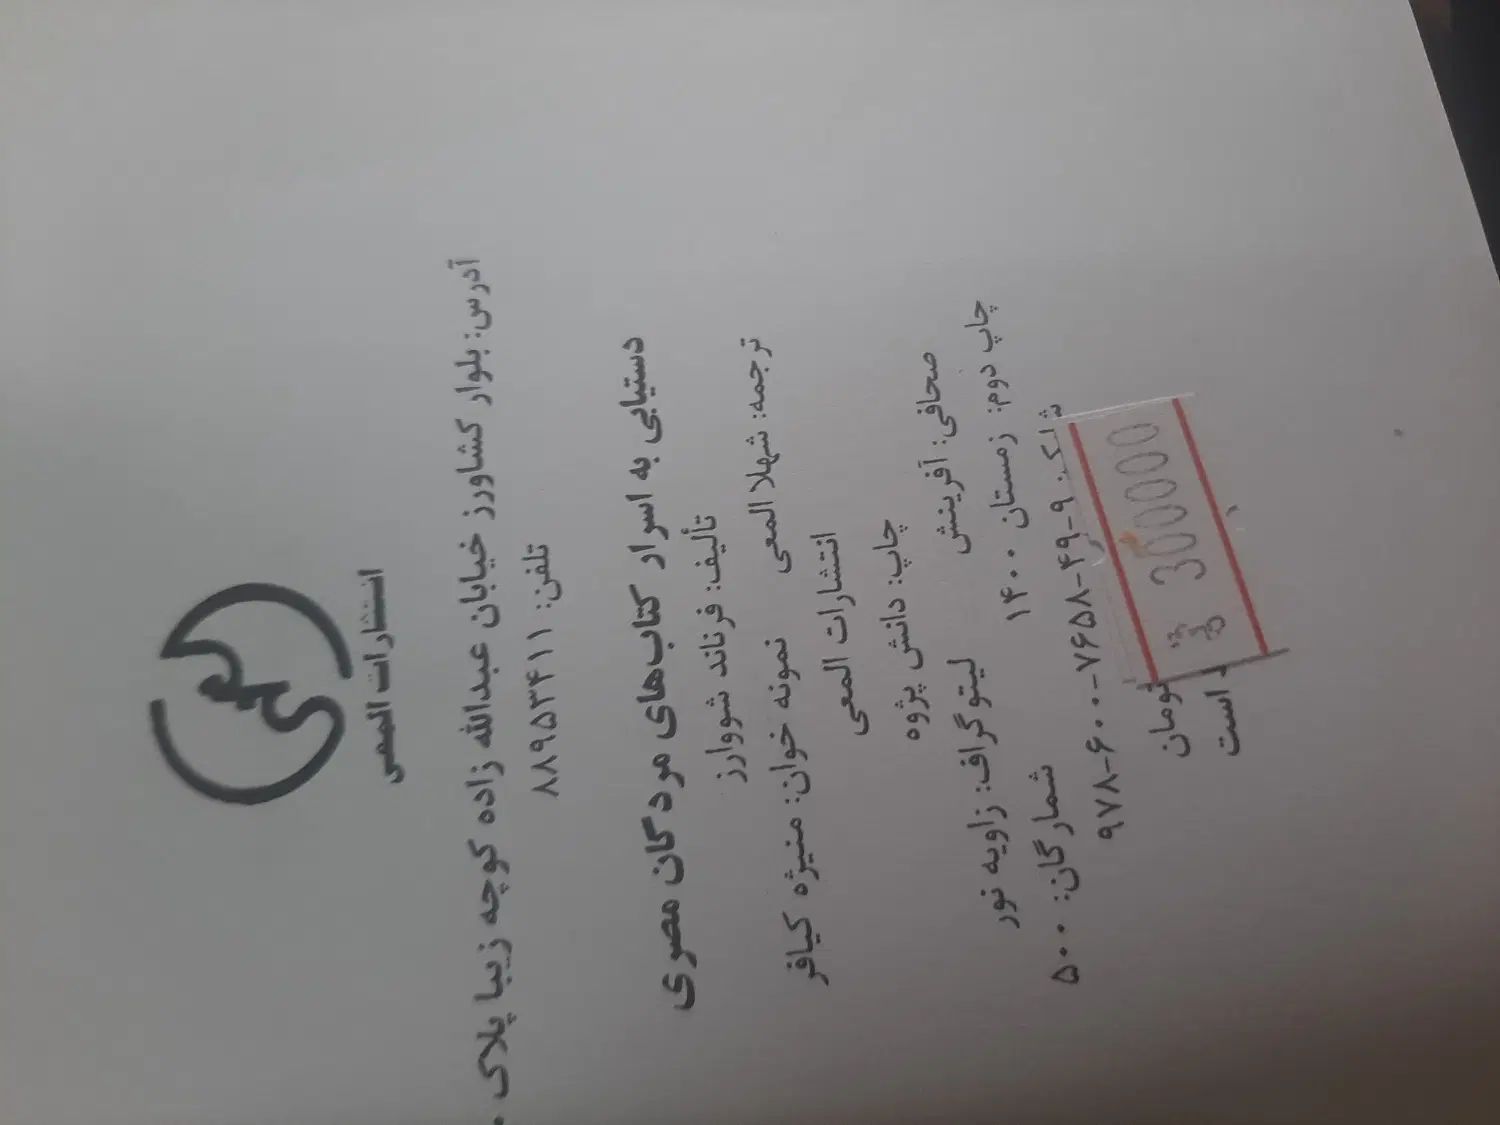 انتشارات المعی
آدرس: بلوار کشاورز خیابان عبدالله زاده کوچه زیبا پلاک
تلفن: ۸۸۹۵۳۴۱۱
دستیابی به اسرار کتاب‌های مردگان مصری
تألیف: فرناند شووارز
ترجمه: شهلا المعی نمونه خوان: منیژه کیافر
انتشارات المعی
چاپ: دانش پژوه
صحافی: آفرینش لیتوگراف: زاویه نور
چاپ دوم: زمستان ۱۴۰۰ شمارگان: ۵۰۰
۹۷۸-۶۰۰-۷۶۵۸-۴۹-۹
3000000
تومان
است